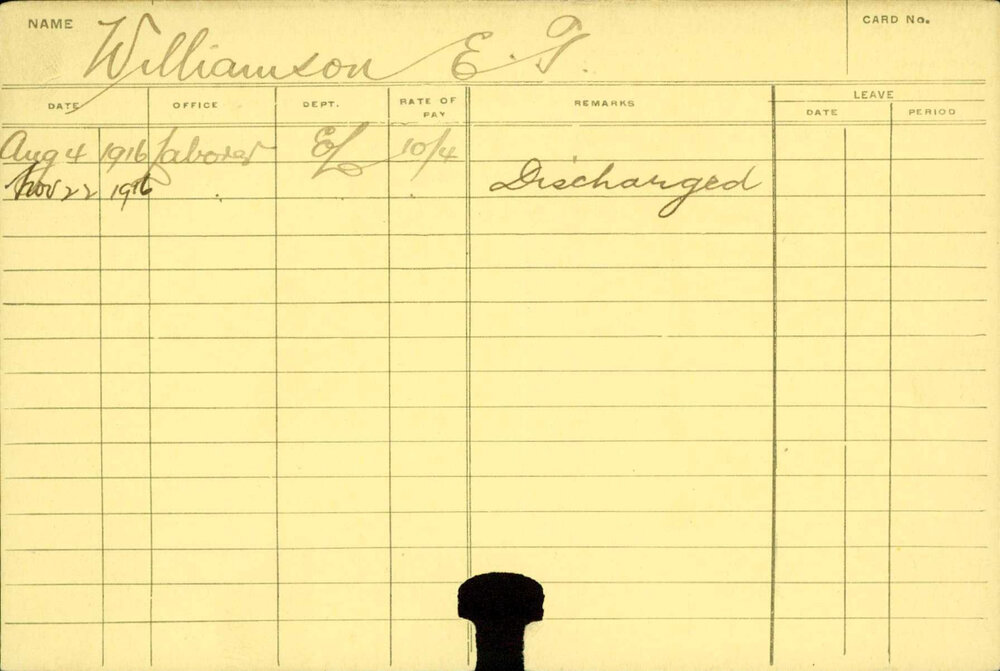 NAME Williamson E. T. CARD No.
DATE OFFICE DEPT. RATE OF PAY REMARKS LEAVE
DATE PERIOD
Aug 4 1916 Laborer EL 10/4
Nov 22 1916 Discharged